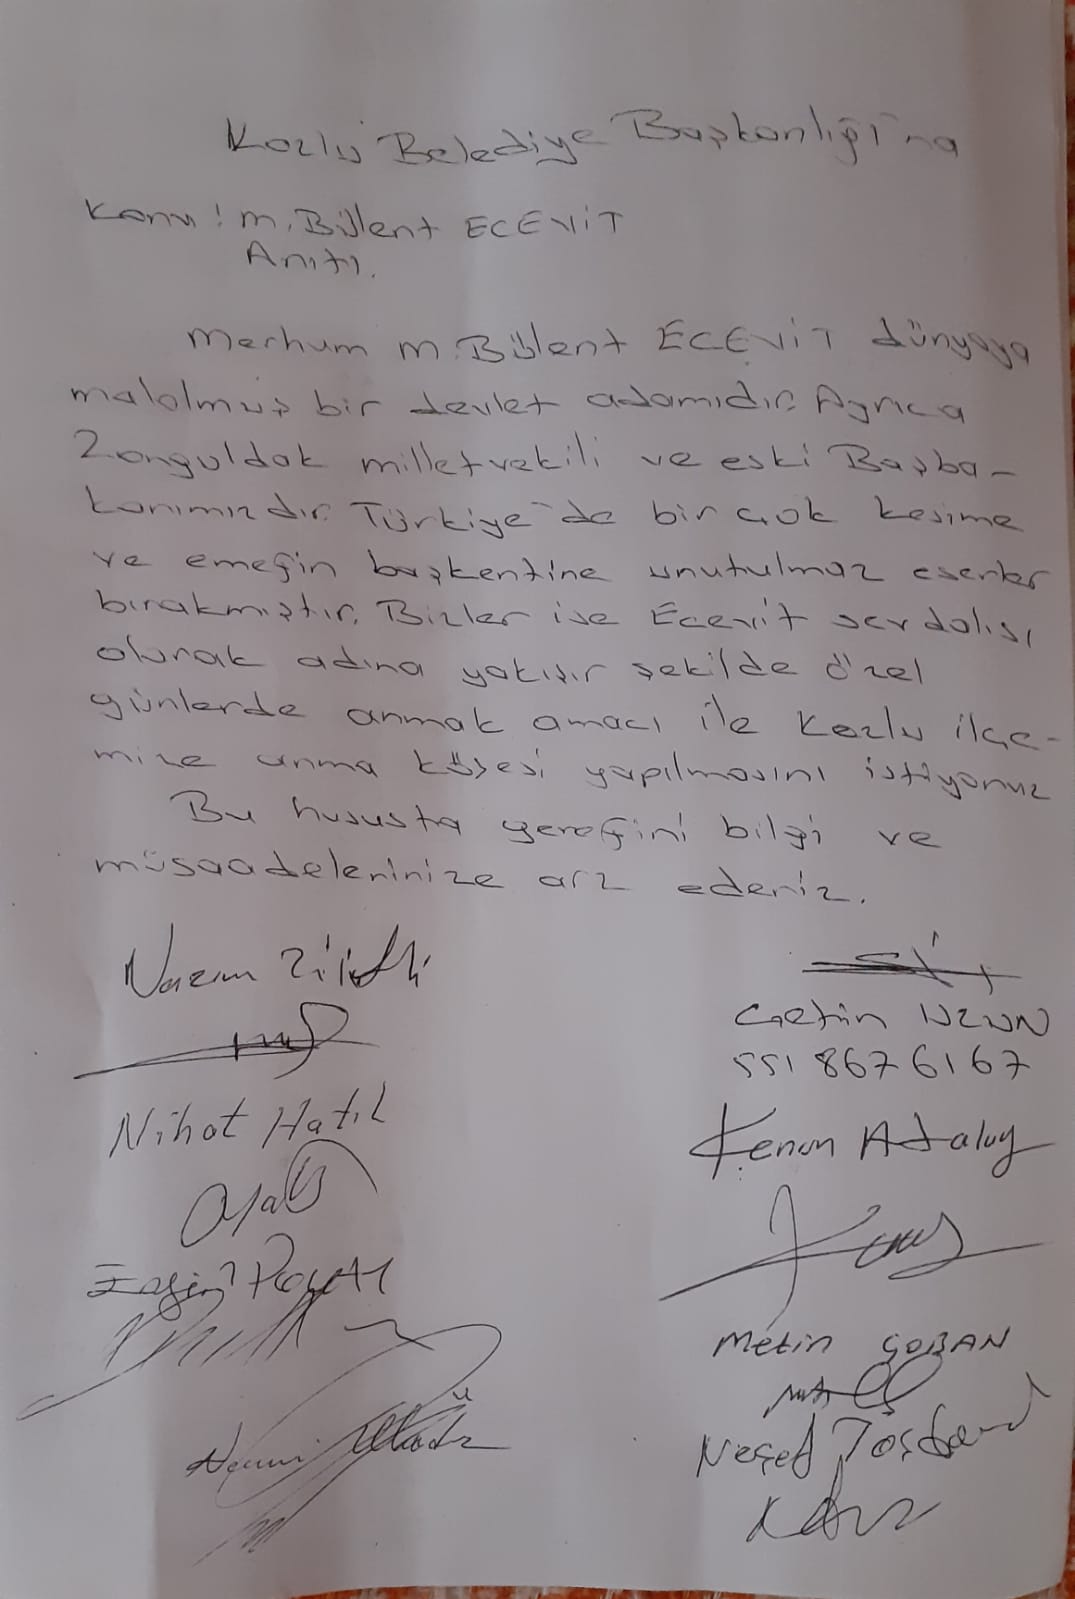 Kozlu Belediye Başkanlığı'na
Konu: M. Bülent ECEVİT
Anıtı.
Merhum M. Bülent ECEVİT dünyaya
malolmuş bir devlet adamıdır. Ayrıca
Zonguldak milletvekili ve eski Başba-
kanımızdır. Türkiye'de bir çok kesime
ve emeğin başkentine unutulmaz eserler
bırakmıştır. Bizler ise Ecevit sevdalısı
olarak adına yakışır şekilde özel
günlerde anmak amacı ile Kozlu ilçe-
mize anma köşesi yapılmasını istiyoruz
Bu hususta gereğini bilgi ve
müsaadelerinize arz ederiz.
Nazım
Çetin UZUN
551 867 6167
Nihat Hatıl
Kenan Atalay
Metin ÇOBAN
Neşed